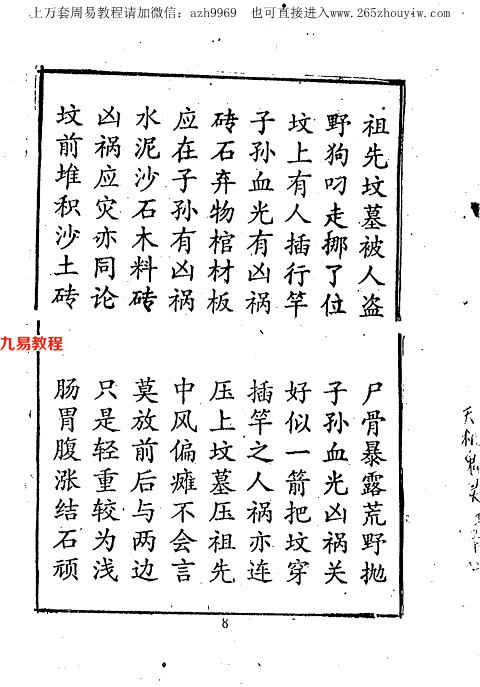 上万套周易教程请加微信：azh9969 也可直接进入www.265zhouyiw.com
祖先坟墓被人盗
尸骨暴露荒野抛
野狗叼走挪了位
子孙血光凶祸关
坟上有人插行竿
好似一箭把坟穿
子孙血光有凶祸
插竿之人祸亦连
砖石弃物棺材板
压上坟墓压祖先
应在子孙有凶祸
中风偏瘫不会言
水泥沙石木料砖
莫放前后与两边
凶祸应灾亦同论
只是轻重较为浅
坟前堆积沙土砖
肠胃腹涨结石顽
九易教程
8